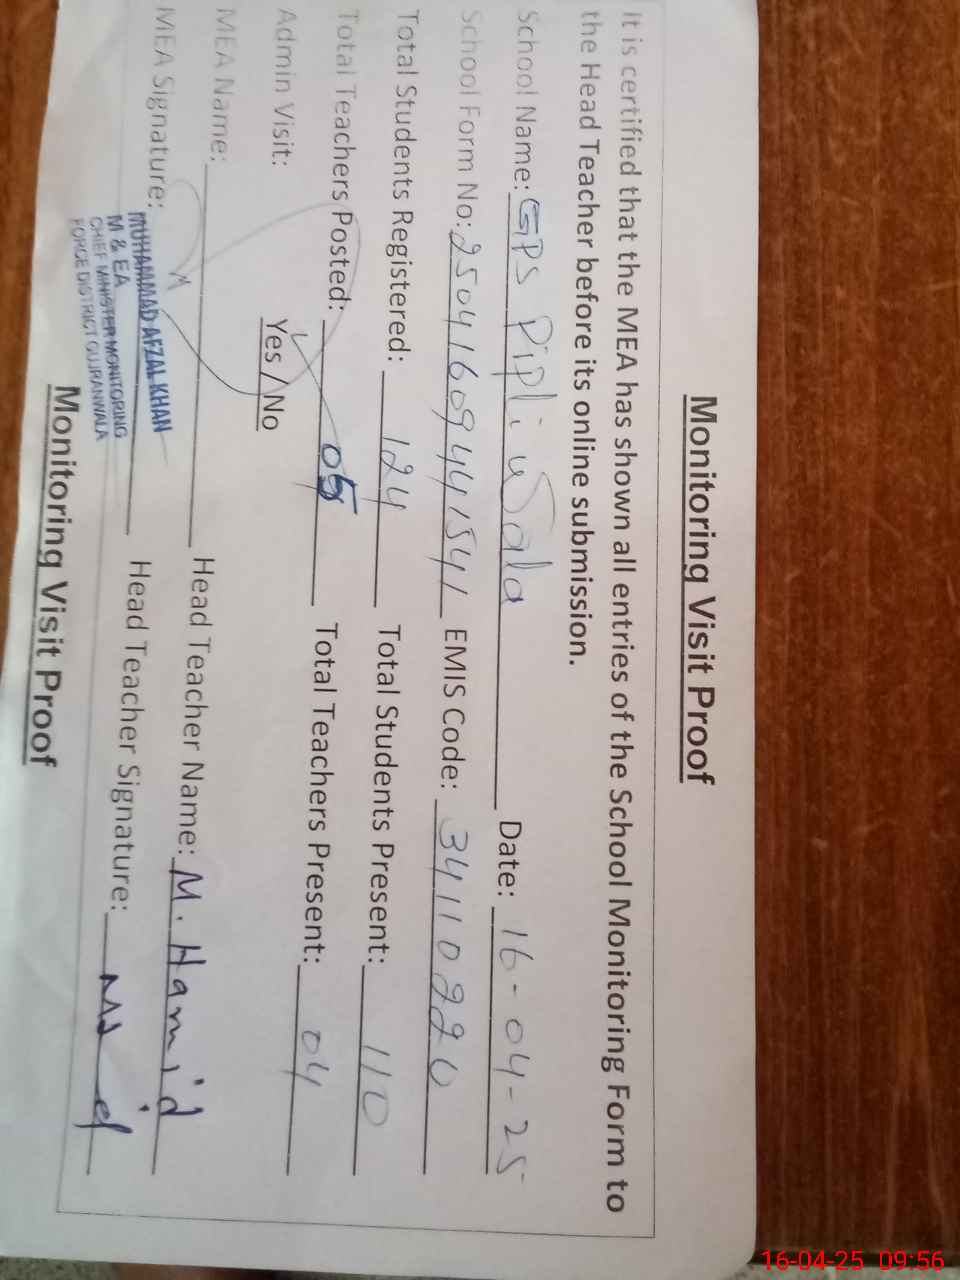 Monitoring Visit Proof
It is certified that the MEA has shown all entries of the School Monitoring Form to
the Head Teacher before its online submission.
School Name: GPS Pipli wala Date: 16-04-25
School Form No: 25041609441541 EMIS Code: 34110220
Total Students Registered: 124 Total Students Present: 110
Total Teachers Posted: 05 Total Teachers Present: 04
Admin Visit: Yes / No
MEA Name: Head Teacher Name: M. Hamid
MEA Signature: Head Teacher Signature:
MUHAMMAD AFZAL KHAN
M & EA
CHIEF MINISTER MONITORING
FORCE DISTRICT GUJRANWALA
Monitoring Visit Proof
16-04-25 09:56